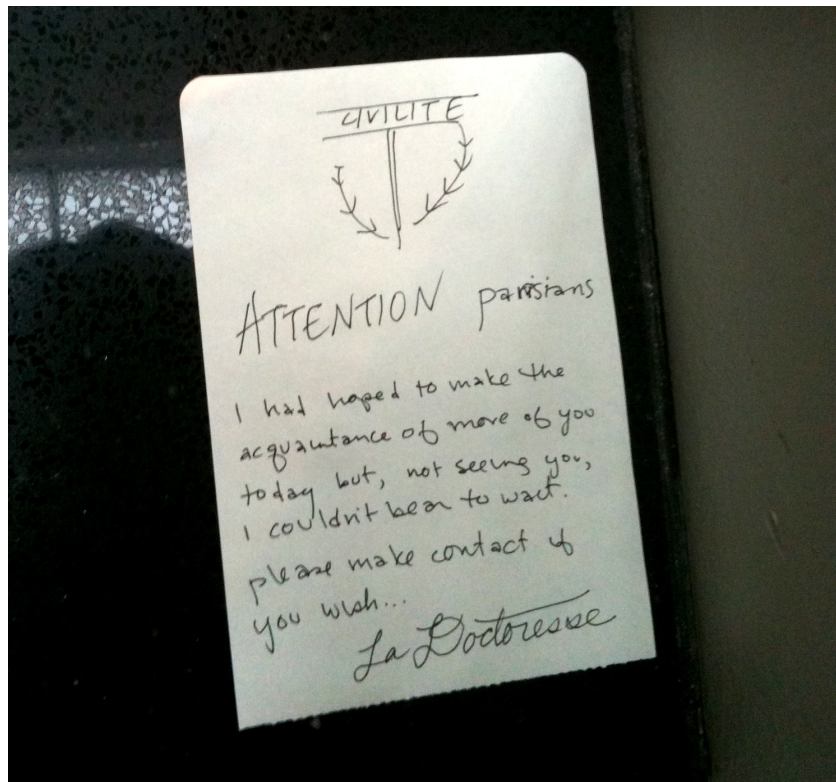 CIVILITE
ATTENTION parisians
I had hoped to make the
acquaintance of more of you
today but, not seeing you,
I couldn't bear to wait.
please make contact if
you wish...
La Doctoresse